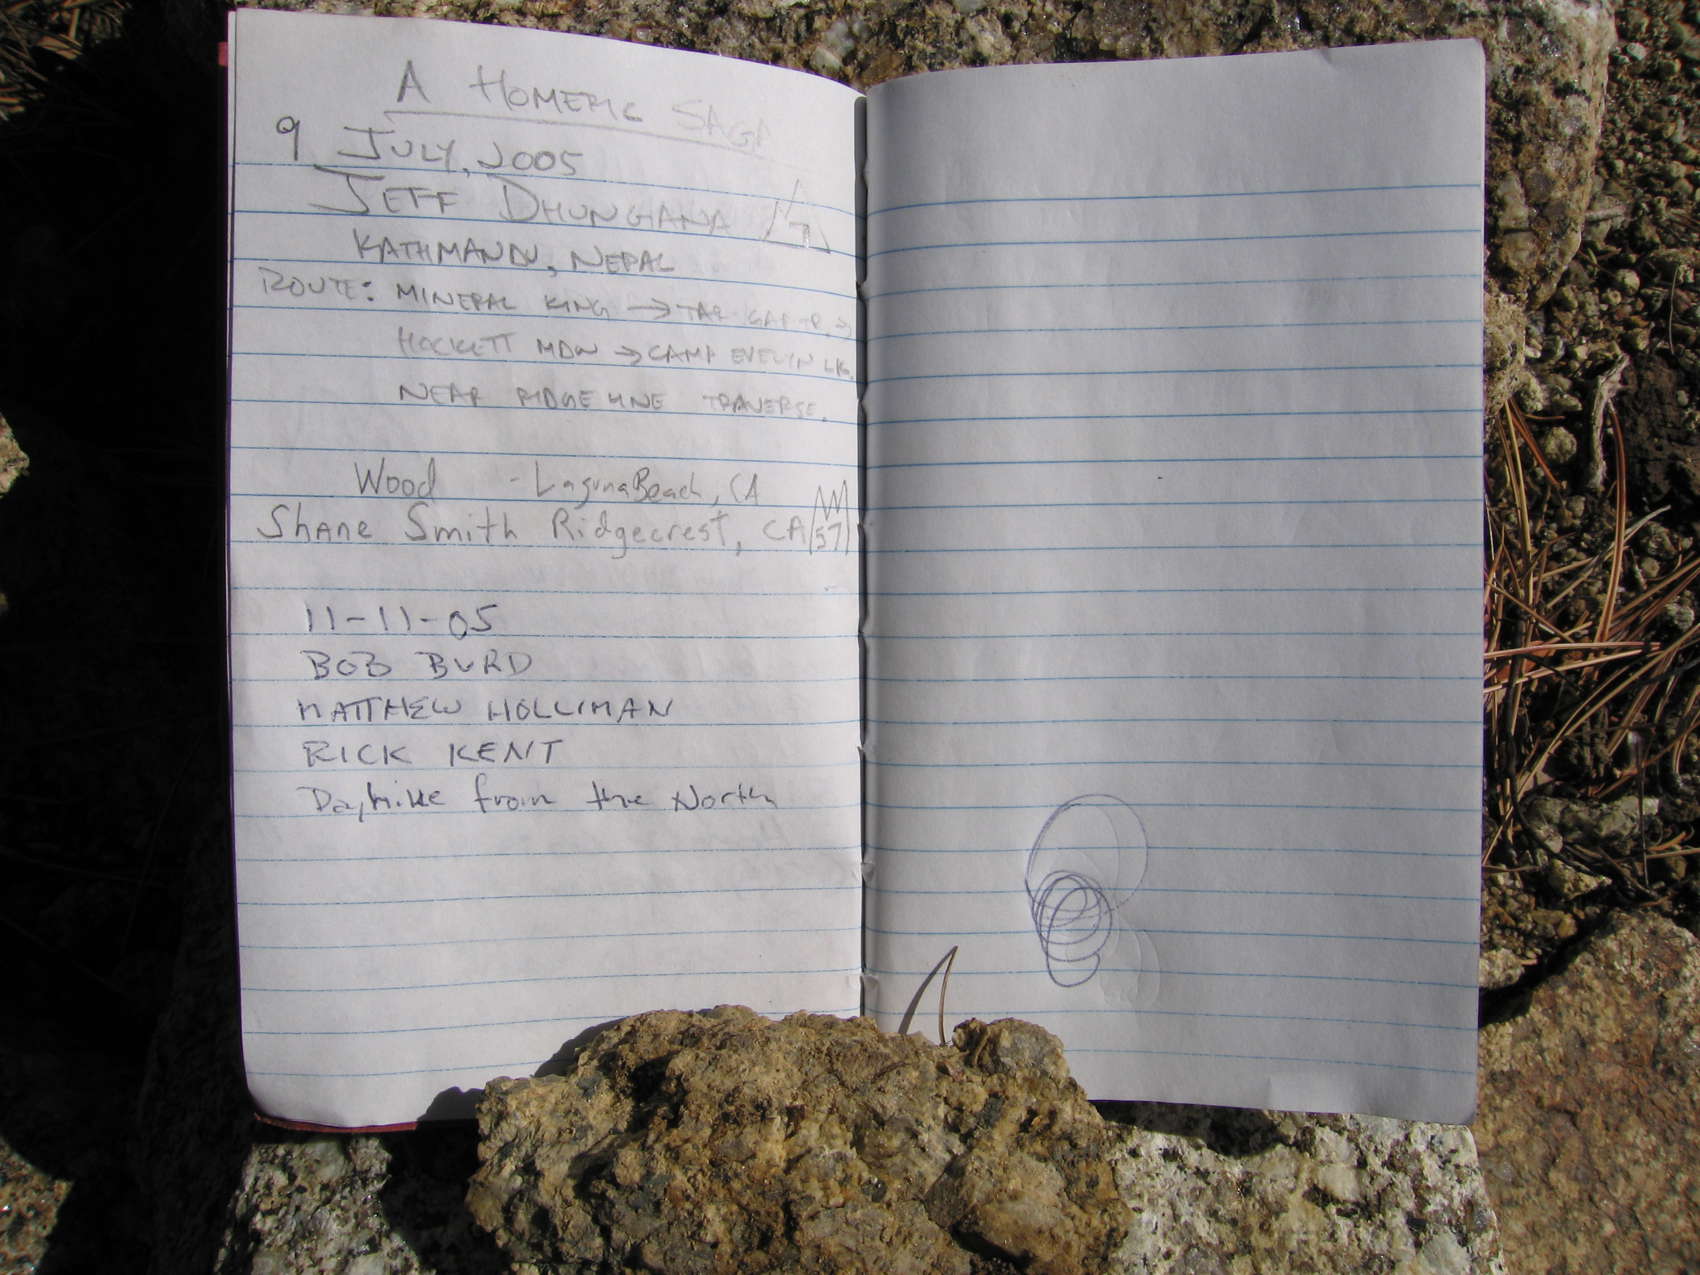 A HOMERIC SAGA
9 JULY, 2005
JEFF DHUNGANA
KATHMANDU, NEPAL
ROUTE: MINERAL KING → TAR GAP TR →
HOCKETT MDW → CAMP EVELYN LK.
NEAR RIDGELINE TRAVERSE.
Wood - Laguna Beach, CA
Shane Smith Ridgecrest, CA
11-11-05
BOB BURD
MATTHEW HOLLIMAN
RICK KENT
Dayhike from the North